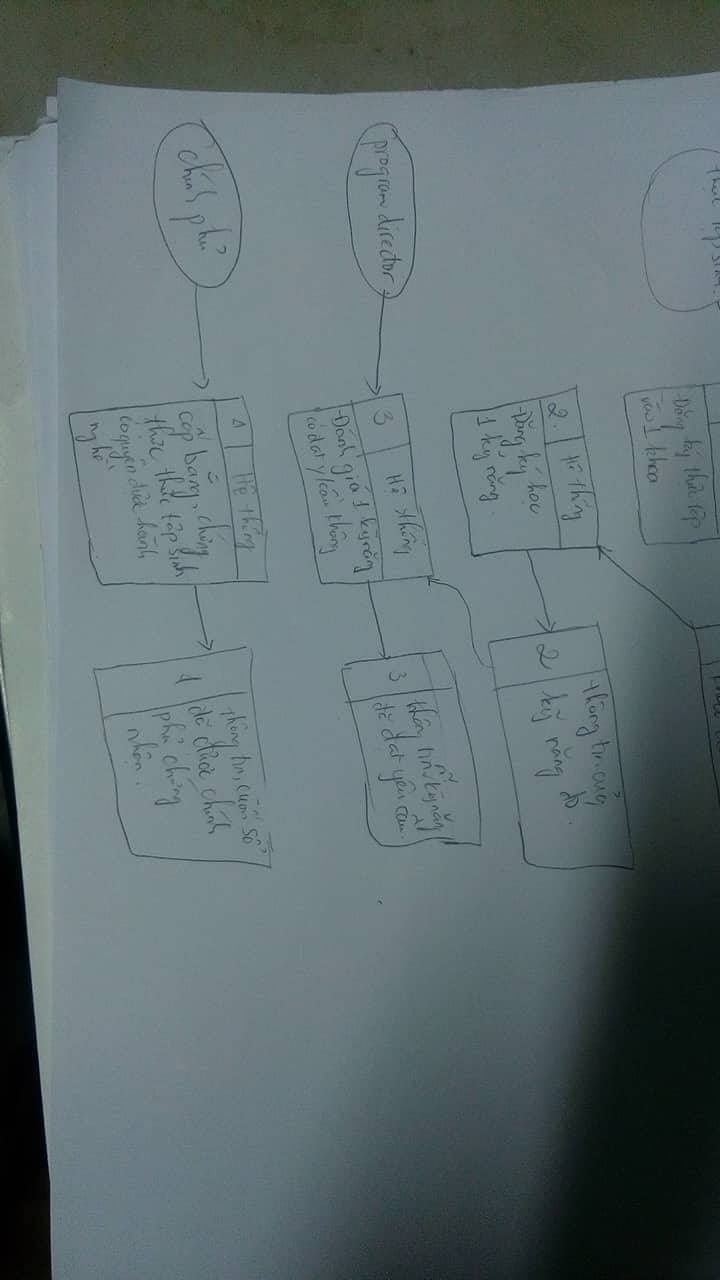 thực tập sinh
-Đăng ký thực tập
vào 1 khoa
2. Hệ thống
-Đăng ký học
1 kỹ năng.
2 thông tin của
kỹ năng đó.
program director
3 Hệ thống
-Đánh giá 1 kỹ năng
có đạt y/cầu không
3 thông tin kỹ năng
đã đạt yêu cầu.
chính phủ
4 Hệ thống
cấp bằng, chứng
thực thực tập sinh
có quyền được hành
nghề.
4 thông tin, cuốn sổ
đã được chính
phủ chứng
nhận.